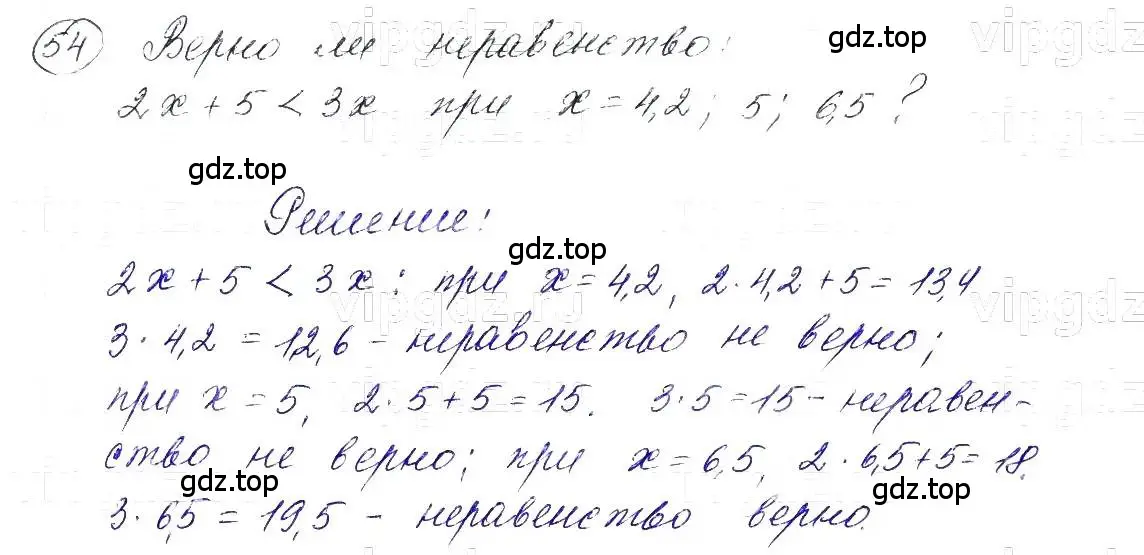 54 Верно ли неравенство: gdz.top
2x + 5 < 3x при x = 4,2; 5; 6,5?
gdz.top
Решение:
gdz.top
2x + 5 < 3x: при x = 4,2, 2·4,2 + 5 = 13,4
3·4,2 = 12,6 – неравенство не верно;
при x = 5, 2·5 + 5 = 15. 3·5 = 15 – неравен-
ство не верно; при x = 6,5, 2·6,5 + 5 = 18.
gdz.top gdz.top
3·6,5 = 19,5 – неравенство верно.